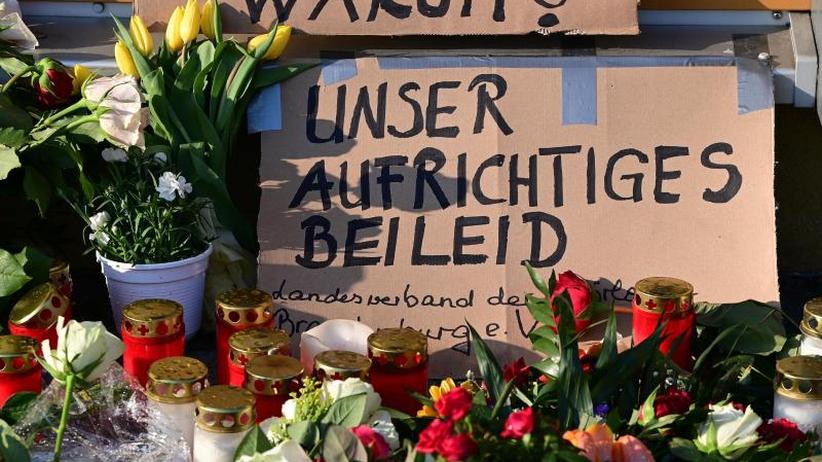 WARUM?
UNSER
AUFRICHTIGES
BEILEID
Landesverband der
e.V.